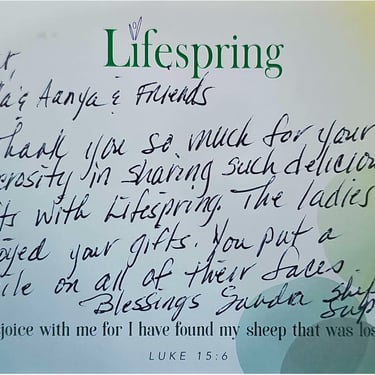 Lifespring
& Aanya & Friends
Thank you so much for your
erosity in sharing such delicious
ts with Lifespring. The ladies
oyed your gifts. You put a
ile on all of their faces
Blessings Sandra
joice with me for I have found my sheep that was los
LUKE 15:6